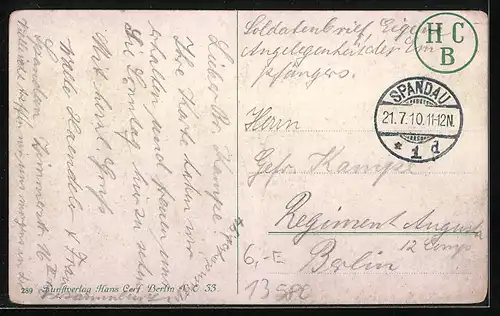 Soldatenbrief, Eigene
Angelegenheit des Em
pfängers.
H C
B
SPANDAU
21.7.10.11-12N.
* 1 d
Herrn
Gefr. Kampe
Regiment Augusta
12 Comp
Berlin
6,-E
13580
Lieber Hr. Kampe
Ihre Karte haben wir
erhalten und freuen uns
Sie Sonntag hier zu sehn
Mit herzl. Gruß
u. Frau
Spandau
289 Kunstverlag Hans Gerf. Berlin N.O. 33.